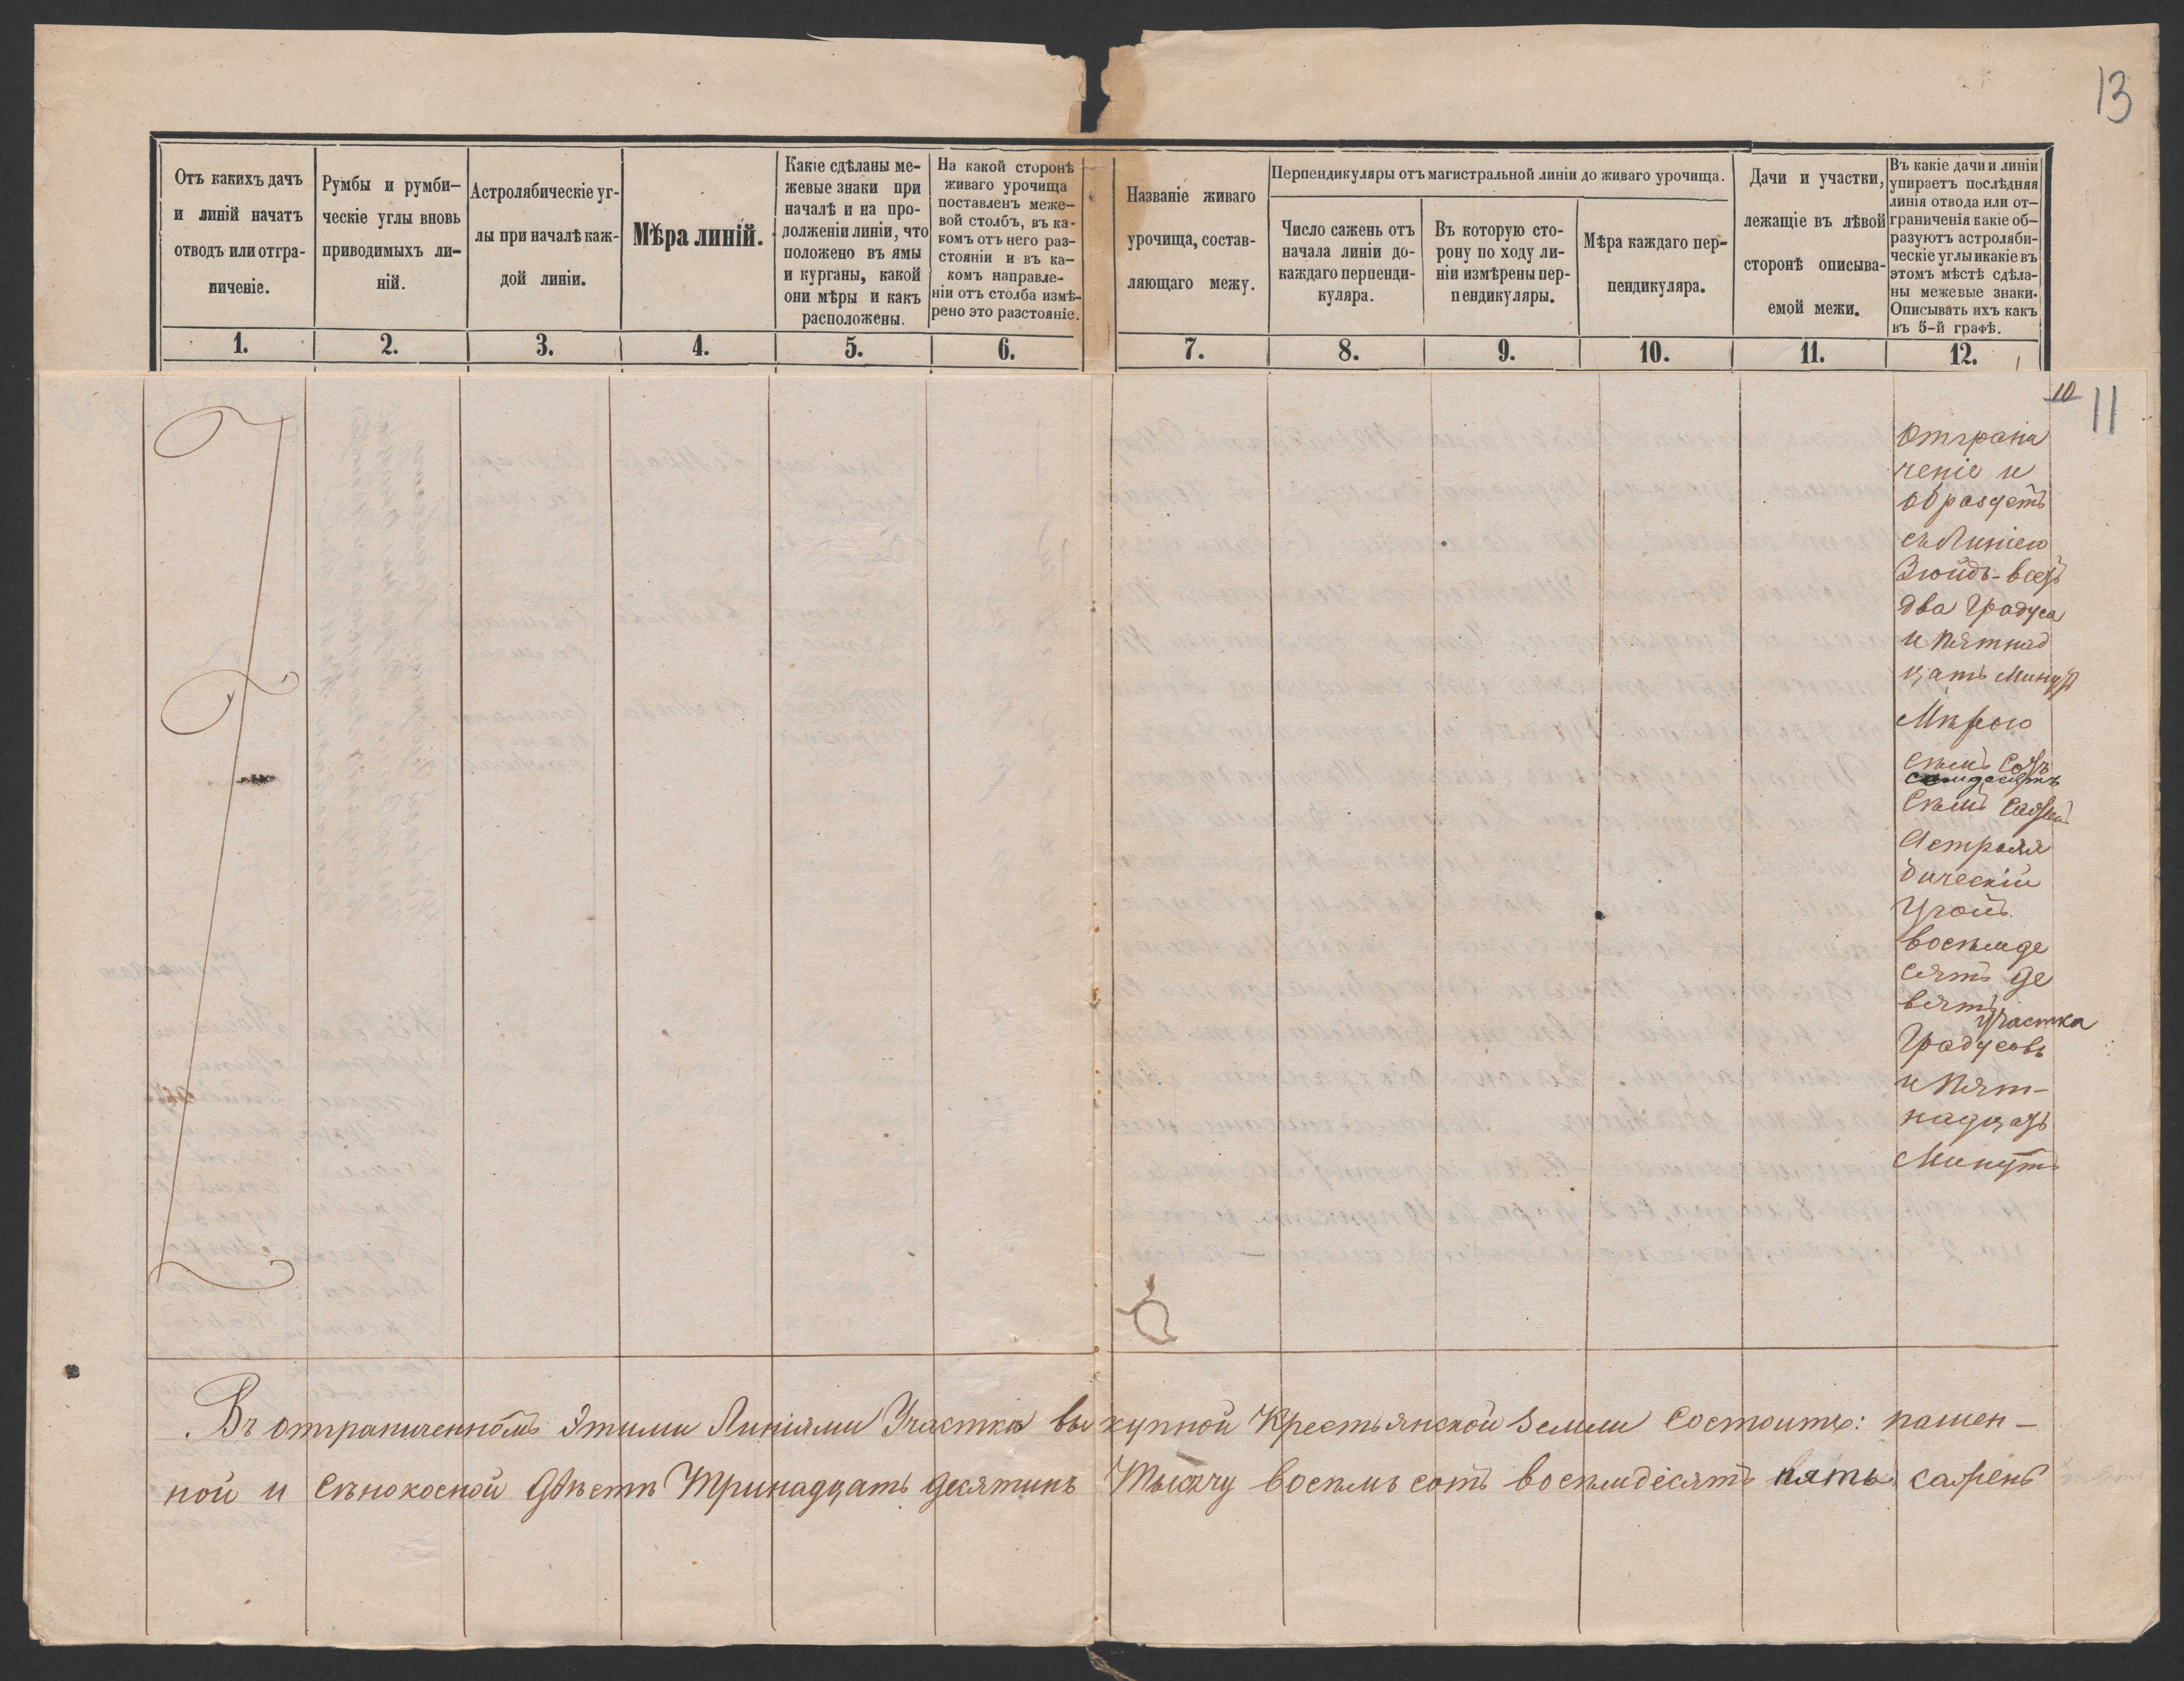 13
Отъ какихъ дачъ
и линій начатъ
отводъ или отгра-
ниченіе.
Румбы и румби-
ческіе углы вновь
приводимыхъ ли-
ній.
Астролябическіе уг-
лы при началѣ каж-
дой линіи.
Мѣра линій.
Какіе сдѣланы ме-
жевые знаки при
началѣ и на про-
долженіи линіи, что
положено въ ямы
и курганы, какой
они мѣры и какъ
расположены.
На какой сторонѣ
живаго урочища
поставленъ меже-
вой столбъ, въ ка-
комъ отъ него раз-
стояніи и въ ка-
комъ направле-
ніи отъ столба измѣ-
рено это разстояніе.
Названіе живаго
урочища, состав-
ляющаго межу.
Перпендикуляры отъ магистральной линіи до живаго урочища.
Число сажень отъ
начала линіи до-
каждаго перпенди-
куляра.
Въ которую сто-
рону по ходу ли-
ніи измѣрены пер-
пендикуляры.
Мѣра каждаго пер-
пендикуляра.
Дачи и участки,
лежащіе въ лѣвой
сторонѣ описыва-
емой межи.
Въ какіе дачи и линіи
упираетъ послѣдняя
линія отвода или от-
граниченія какіе об-
разуютъ астроляби-
ческіе углы и какіе въ
этомъ мѣстѣ сдѣла-
ны межевые знаки.
Описывать ихъ какъ
въ 5-й графѣ.
1. 2. 3. 4. 5. 6. 7. 8. 9. 10. 11. 12.
10
11
Отграни
ченіе и
образуетъ
съ Линіею
Зюйдъ-вестъ
два Градуса
и пятнад
цать минутъ
Мѣрою
семь сотъ
семдесятъ
семь сажень
Астроля
бическій
Уголъ
восемьде
сятъ де
вять
участка
Градусовъ
и пят-
надцать
Минутъ
Въ отграниченномъ Этими Линіями Участкѣ выкупной Крестьянской Земли Состоитъ: пашен-
ной и сѣнокосной Двѣсти Тринадцать десятинъ Тысячу восемь сотъ восемьдесятъ пять сажень